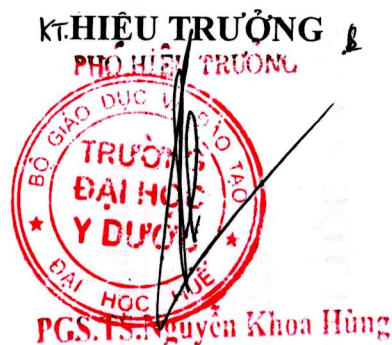 KT.HIỆU TRƯỞNG
PHÓ HIỆU TRƯỞNG
BỘ GIÁO DỤC VÀ ĐÀO TẠO
TRƯỜNG
ĐẠI HỌC
Y DƯỢC
ĐẠI HỌC HUẾ
PGS.TS.Nguyễn Khoa Hùng